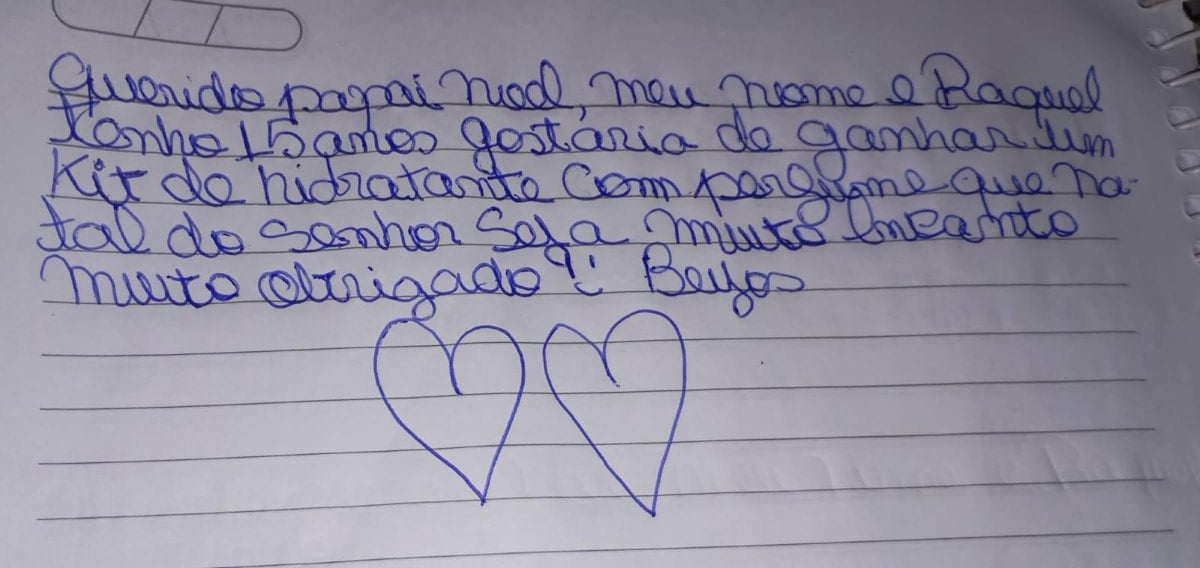 Querido papai Noel, meu nome e Raquel
tenho 15 anos gostária de ganhar um
Kit de hidratante com perfume que na-
tal do senhor seja muito encanto
muito obrigado Beijos